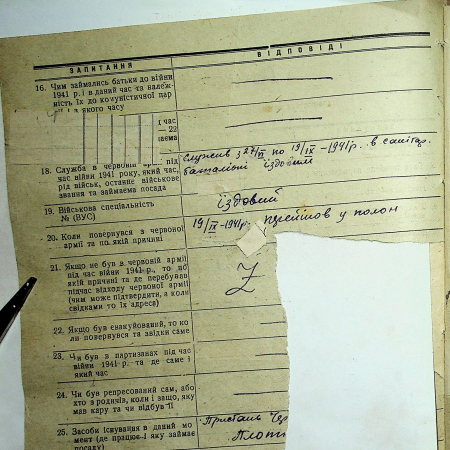 ЗАПИТАННЯ
ВІДПОВІДІ
16. Чим займались батьки до війни
1941 р. і в даний час та належ-
ність їх до комуністичної пар
з якого часу
і час
— 22
18. Служба в червоній армії під
час війни 1941 року, який час,
рід військ, останнє військове
звання та займаєма посада
Служив з 27/VI по 19/IX-1941 р. в
батальоні їздовим
19. Військова спеціальність
№ (ВУС)
їздовий
20. Коли повернувся з червоної
армії та по якій причині
19/IX-1941 р. перейшов у полон
21. Якщо не був в червоній армії
під час війни 1941 р., то по
якій причині та де перебував
підчас відходу червоної армії
(чим може підтвердити, а коли
свідками то їх адреса)
Z
22. Якщо був евакуйований, то ко
ли повернувся та звідки саме
23. Чи був в партизанах під час
війни 1941 р. та де саме і
який час
24. Чи був репресований сам, або
хто з родичів, коли і защо, яку
мав кару та чи відбув її
25. Засоби існування в даний мо
мент (де працює і яку займає
посаду)
Пристань Чер
Плотн